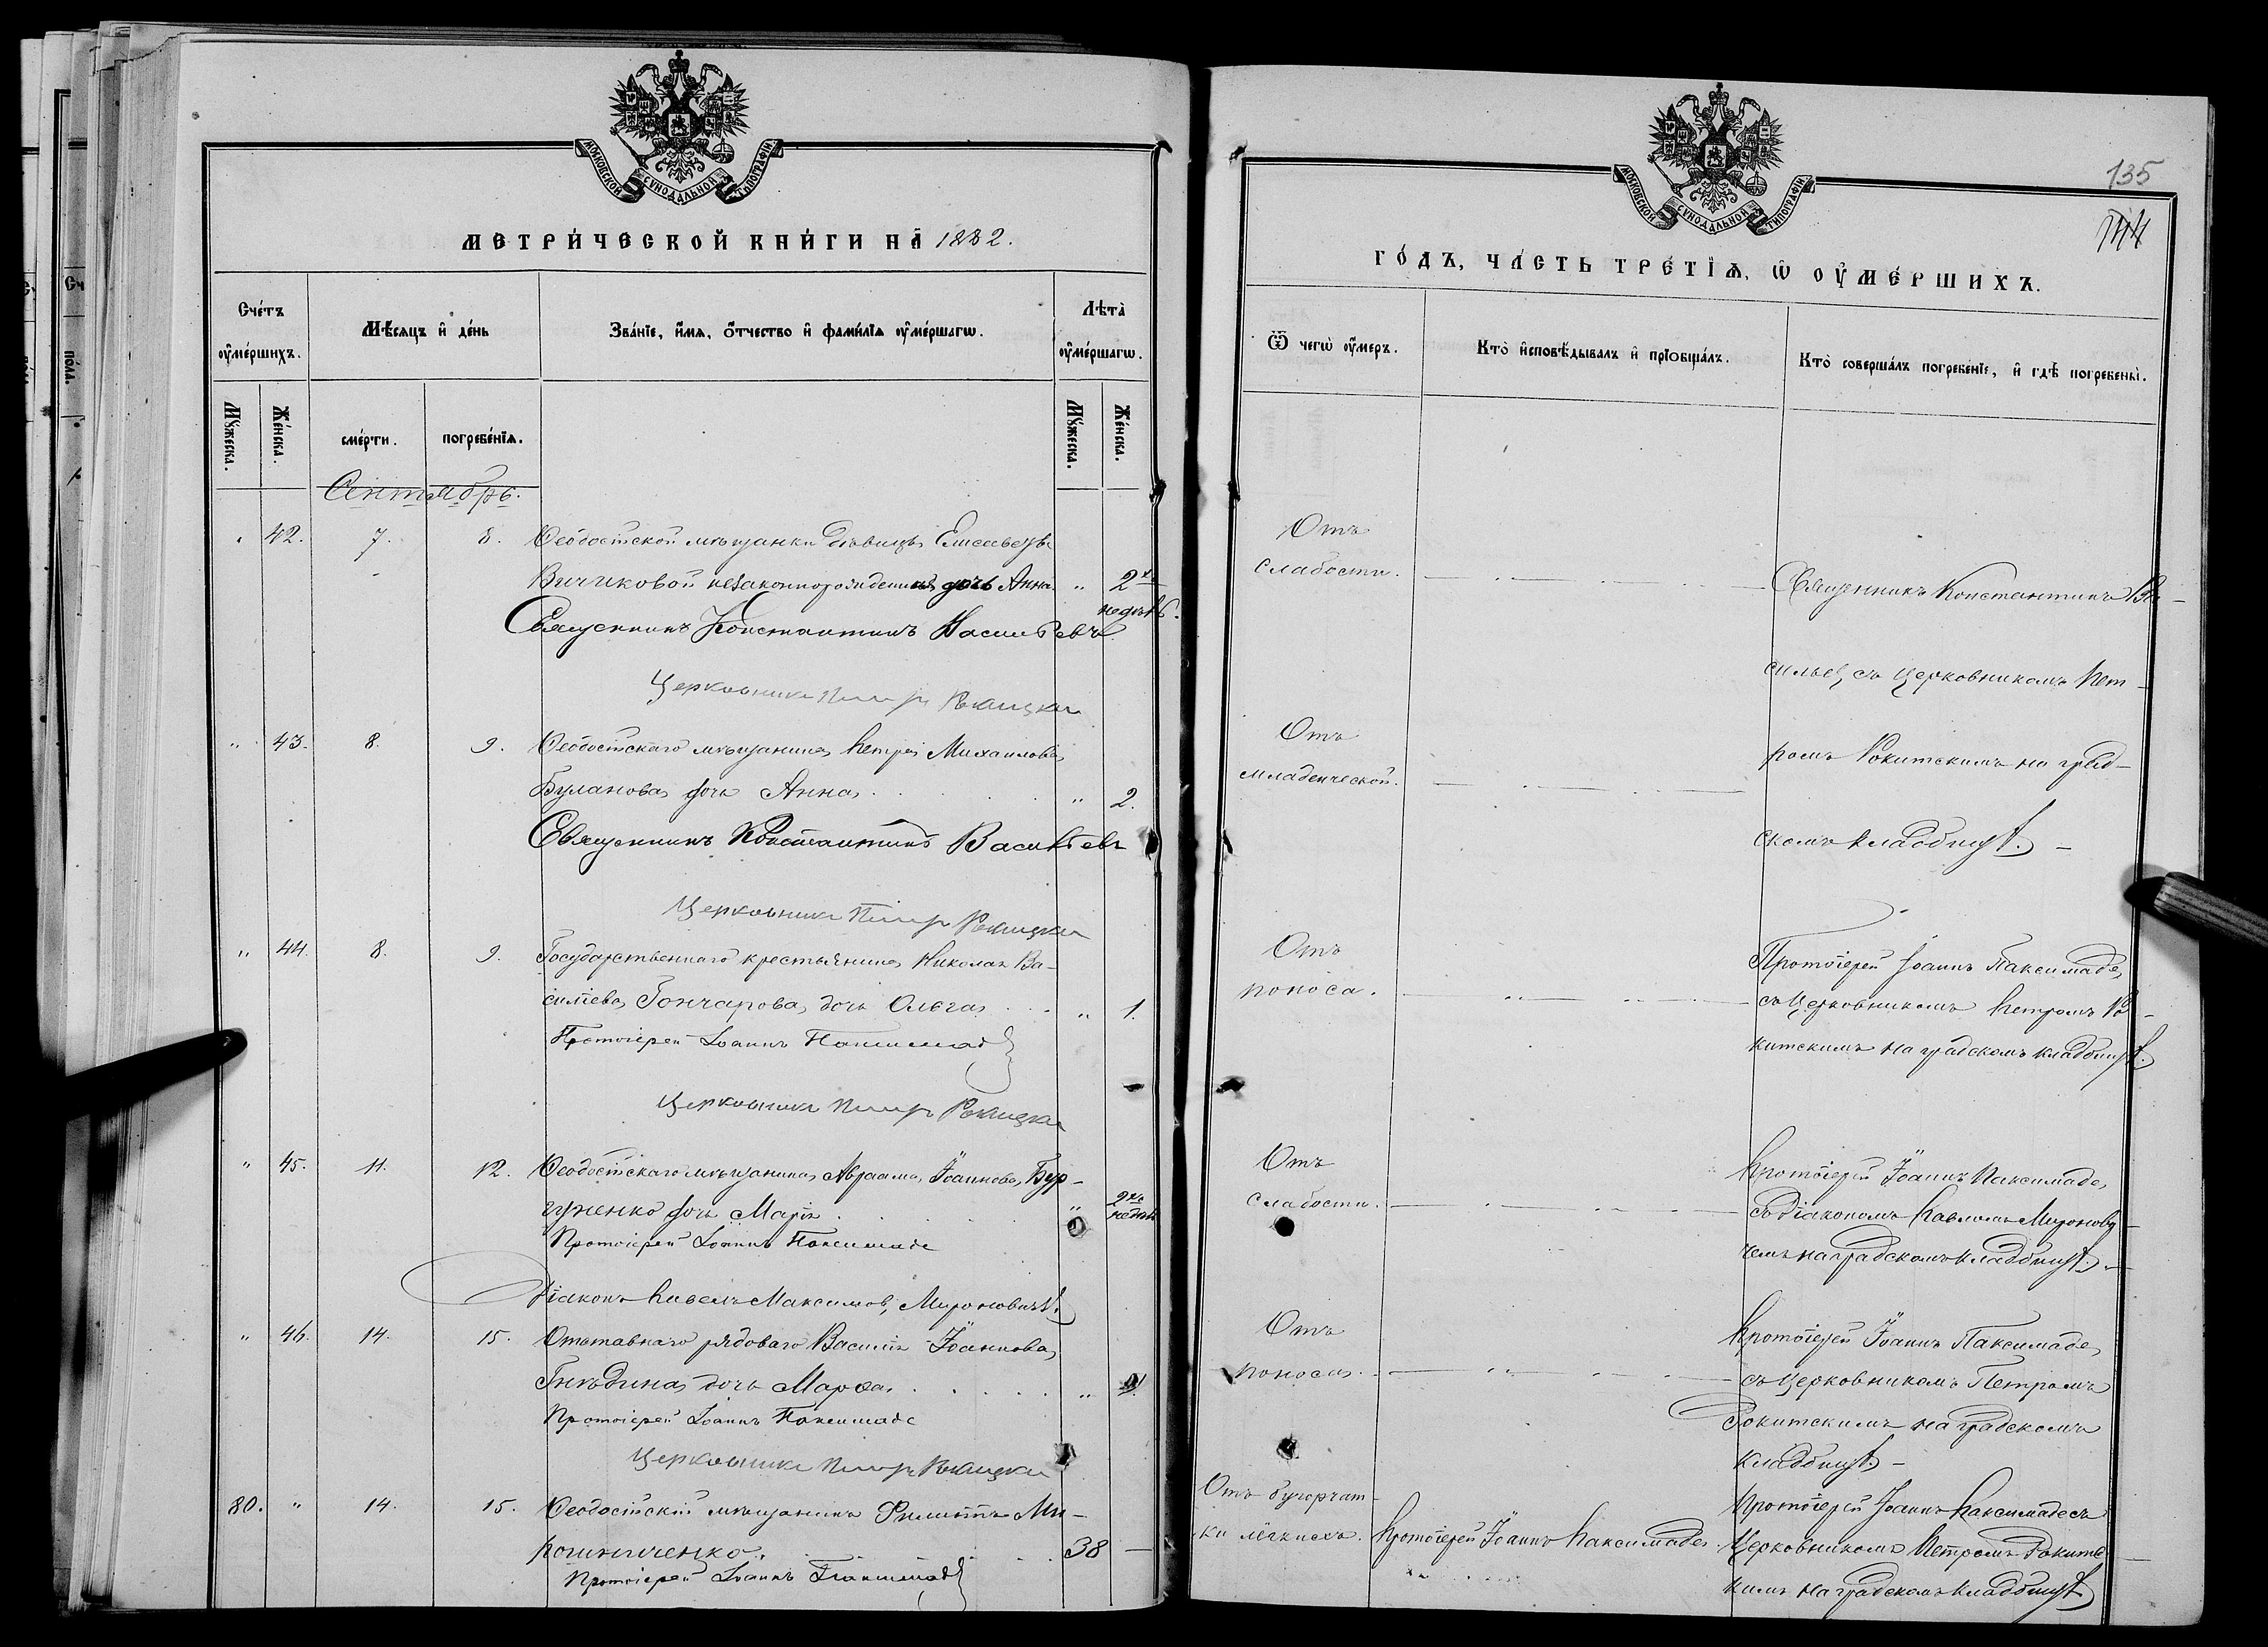 МОСКОВСКОЙ СѴНОДАЛЬНОЙ ТИПОГРАФІИ
МЕТРИЧЕСКОЙ КНИГИ НА 1882.
Счетъ оумершихъ.
Мѣсяцъ и день
Званіе, имя, отчество и фамилія оумершагѡ.
Лѣта оумершагѡ.
Мужеска. Женска. смерти. погребенія. Мужеска. Женска.
Сентябрь.
" 42. 7. 8. Ѳеодосійской мѣщанки дѣвицы Елисаветы
Бичиковой незаконнорожденная дочь Анна " 2хъ
недѣль.
Священникъ Константинъ Васильевъ
Церковникъ Петръ Рокицкій
" 43. 8. 9. Ѳеодосійскаго мѣщанина Петра Михаилова
Буланова дочь Анна " 2.
Священникъ Константинъ Васильевъ
Церковникъ Петръ Рокицкій
" 44. 8. 9. Государственнаго крестьянина Николая Ва-
силіева Гончарова дочь Ольга " 1.
Протоіерей Іоаннъ Паксимаде
Церковникъ Петръ Рокицкій
" 45. 11. 12. Ѳеодосійскаго мѣщанина Авраама Іоаннова Бур-
дочь Марія " 2хъ
недѣль
Протоіерей Іоаннъ Паксимаде
Діаконъ Павелъ Максимов. Мироновичъ.
" 46. 14. 15. Отставнаго рядоваго Василія Іоаннова
Гнѣдина дочь Марѳа "
Протоіерей Іоаннъ Паксимаде
Церковникъ Петръ Рокицкій
80. " 14. 15. Ѳеодосійскій мѣщанинъ Филиппъ Ми-
38 —
Протоіерей Іоаннъ Паксимаде
МОСКОВСКОЙ СѴНОДАЛЬНОЙ ТИПОГРАФІИ
135
144
ГОДЪ, ЧАСТЬ ТРЕТІЯ, Ѡ ОУМЕРШИХЪ.
Ѿ чегѡ оумеръ.
Кто исповѣдывалъ и пріобщалъ.
Кто совершалъ погребеніе, и гдѣ погребены.
Отъ
слабости.
Священникъ Константинъ Ва-
сильев съ церковникомъ Пет-
ромъ Рокитскимъ на град-
скомъ кладбищѣ.
Отъ
младенческой.
Отъ
поноса.
Протоіерей Іоаннъ Паксимаде,
съ церковникомъ Петромъ Ро-
китскимъ на градскомъ кладбищѣ.
Отъ
слабости.
Протоіерей Іоаннъ Паксимаде,
съ діакономъ Павломъ Миронови-
чемъ на градскомъ кладбищѣ.
Отъ
поноса.
Протоіерей Іоаннъ Паксимаде,
съ церковникомъ Петромъ
Рокитскимъ на градскомъ
кладбищѣ.
Отъ бугорчат-
ки лёгкихъ. Протоіерей Іоаннъ Паксимаде.
Протоіерей Іоаннъ Паксимаде съ
церковникомъ Петромъ Рокитс-
кимъ на градскомъ кладбищѣ